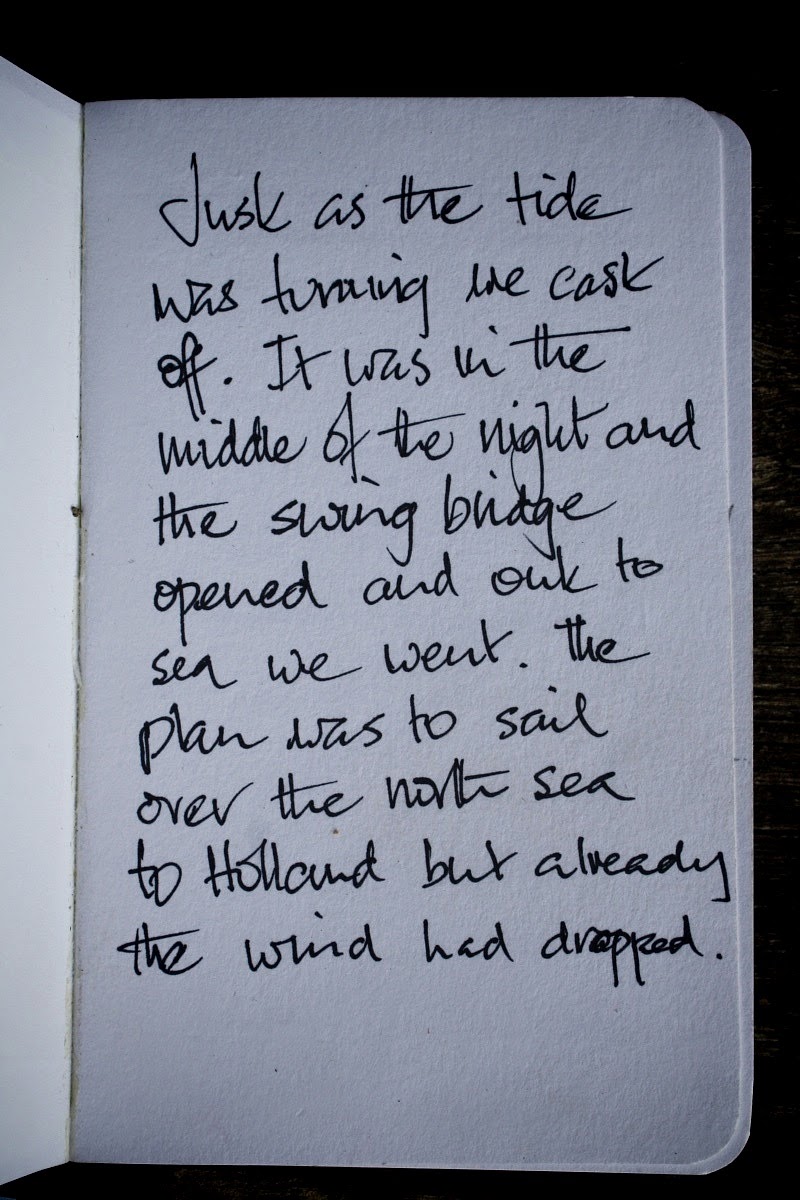 Just as the tide
was turning we cast
off. It was in the
middle of the night and
the swing bridge
opened and out to
sea we went. The
plan was to sail
over the north sea
to Holland but already
the wind had dropped.